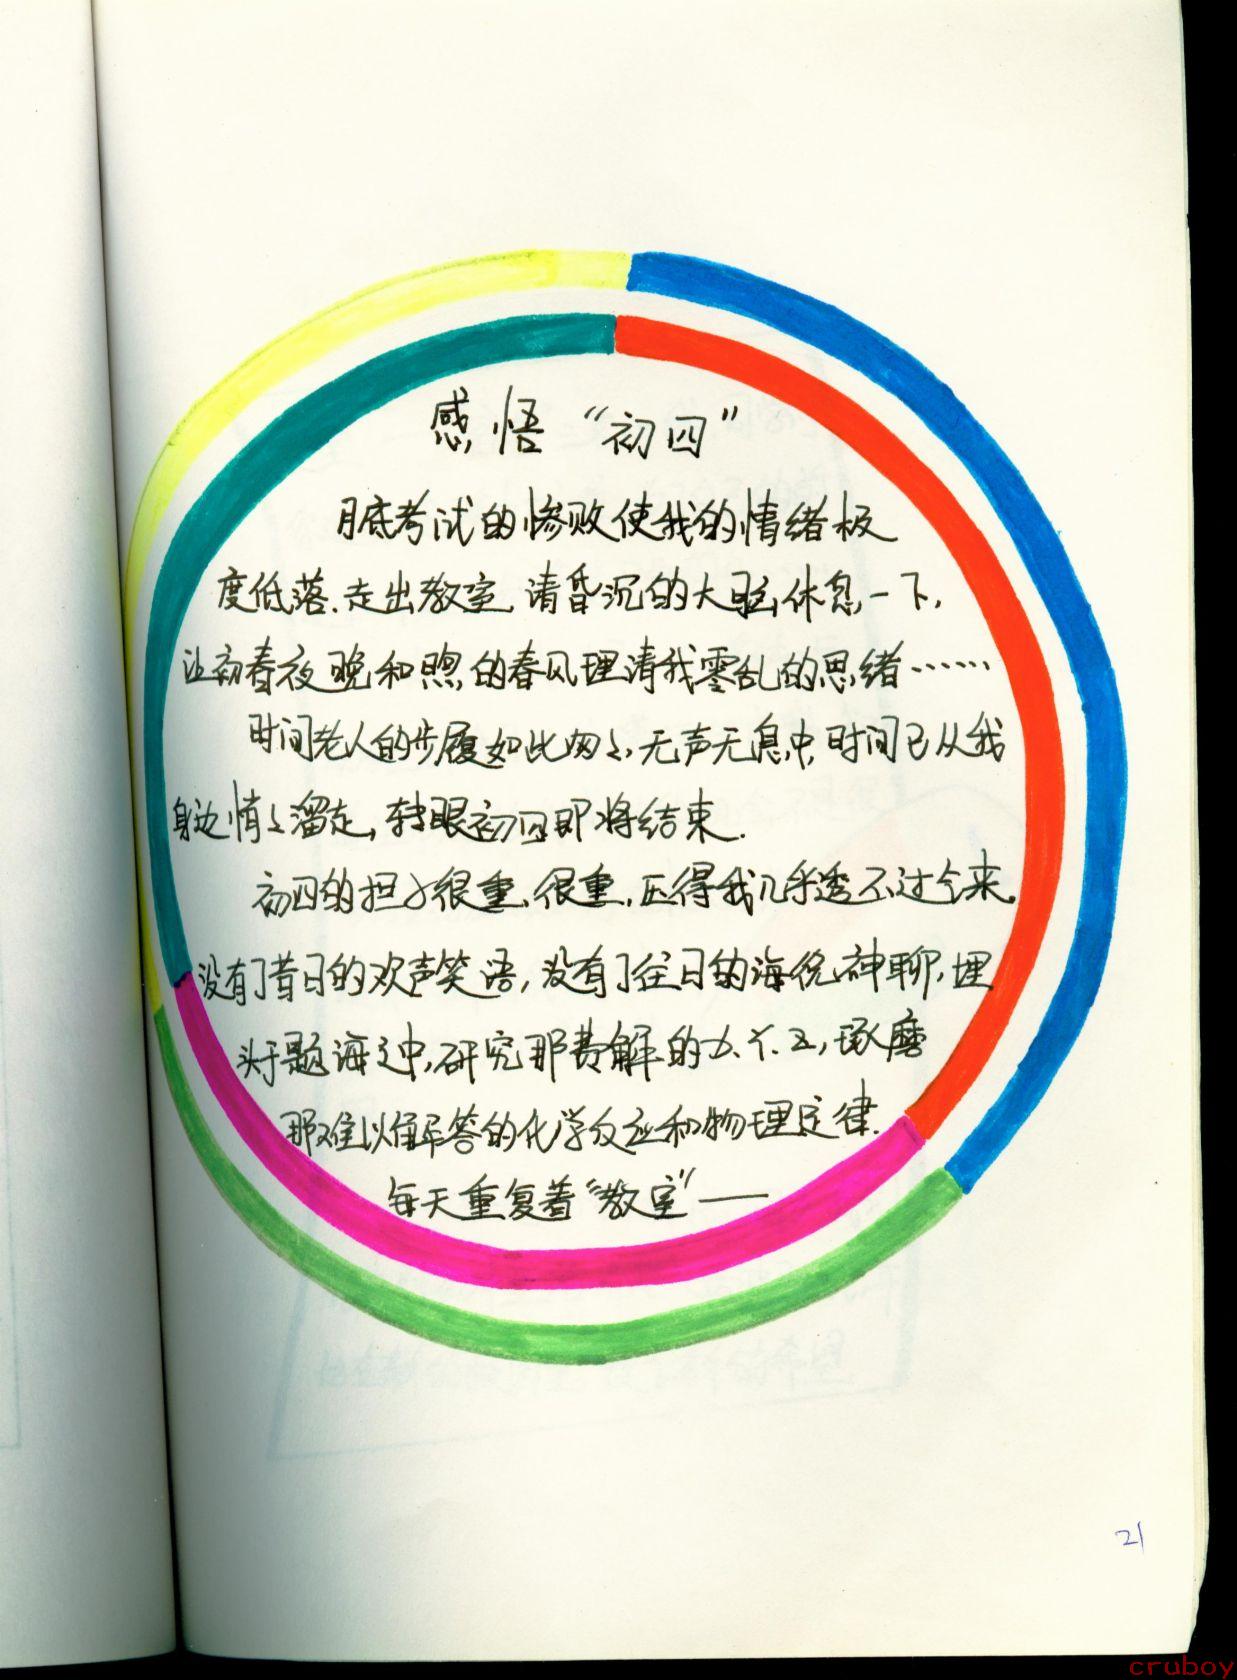 感悟“初四”
月底考试的惨败使我的情绪极
度低落.走出教室,请昏沉的大脑休息一下,
让初春夜晚和煦的春风理清我零乱的思绪……
时间老人的步履如此匆匆,无声无息中,时间已从我
身边悄悄溜走,转眼初四即将结束.
初四的担子很重,很重,压得我几乎透不过气来.
没有了昔日的欢声笑语,没有了往日的海侃神聊,埋
头于题海之中,研究那费解的x.Y.Z,琢磨
那难以解答的化学反应和物理定律.
每天重复着“教室”——
21
cruboy